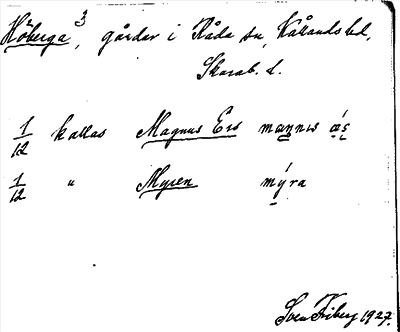 Höberga 3, gårdar i Råda sn, Kållands hd,
Skarab. l.
1/12 kallas Magnus Ers mannıs
1/12 " Myren mýra
Sven Friberg 1927.